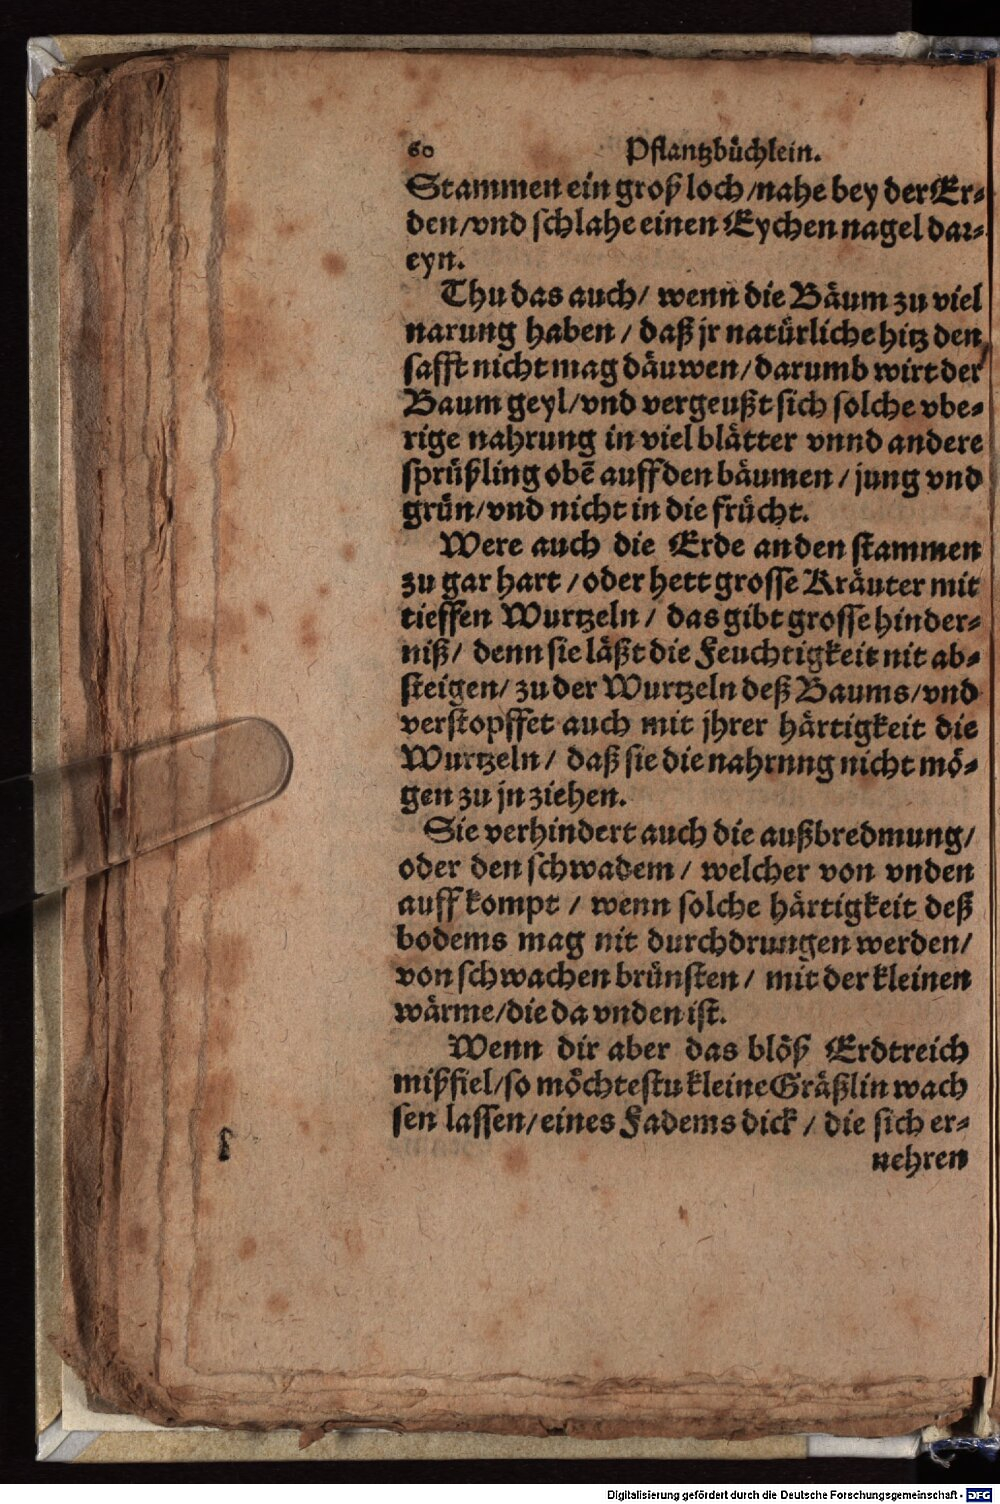 60 Pflantzbüchlein.
Stammen ein groß loch/nahe bey der Er-
den/vnd schlahe einen Eychen nagel dar-
eyn.
Thu das auch/ wenn die Bäum zu viel
narung haben / daß jr natürliche hitz den
safft nicht mag däuwen/darumb wirt der
Baum geyl/vnd vergeußt sich solche vbe-
rige nahrung in viel blätter vnnd andere
sprüßling obẽ auff den bäumen / jung vnd
grün/vnd nicht in die frücht.
Were auch die Erde an den stammen
zu gar hart /oder hett grosse Kräuter mit
tieffen Wurtzeln / das gibt grosse hinder-
niß/ denn sie läßt die Feuchtigkeit nit ab-
steigen/ zu der Wurtzeln deß Baums/vnd
verstopffet auch mit jhrer härtigkeit die
Wurtzeln / daß sie die nahrnng nicht mö-
gen zu jn ziehen.
Sie verhindert auch die außbredmung/
oder den schwadem / welcher von vnden
auff kompt / wenn solche härtigkeit deß
bodems mag nit durchdrungen werden/
von schwachen brünsten / mit der kleinen
wärme/die da vnden ist.
Wenn dir aber das blöß Erdtreich
mißfiel/so möchtestu kleine Gräßlin wach
sen lassen/eines Fadems dick / die sich er-
nehren
Digitalisierung gefördert durch die Deutsche Forschungsgemeinschaft - DFG